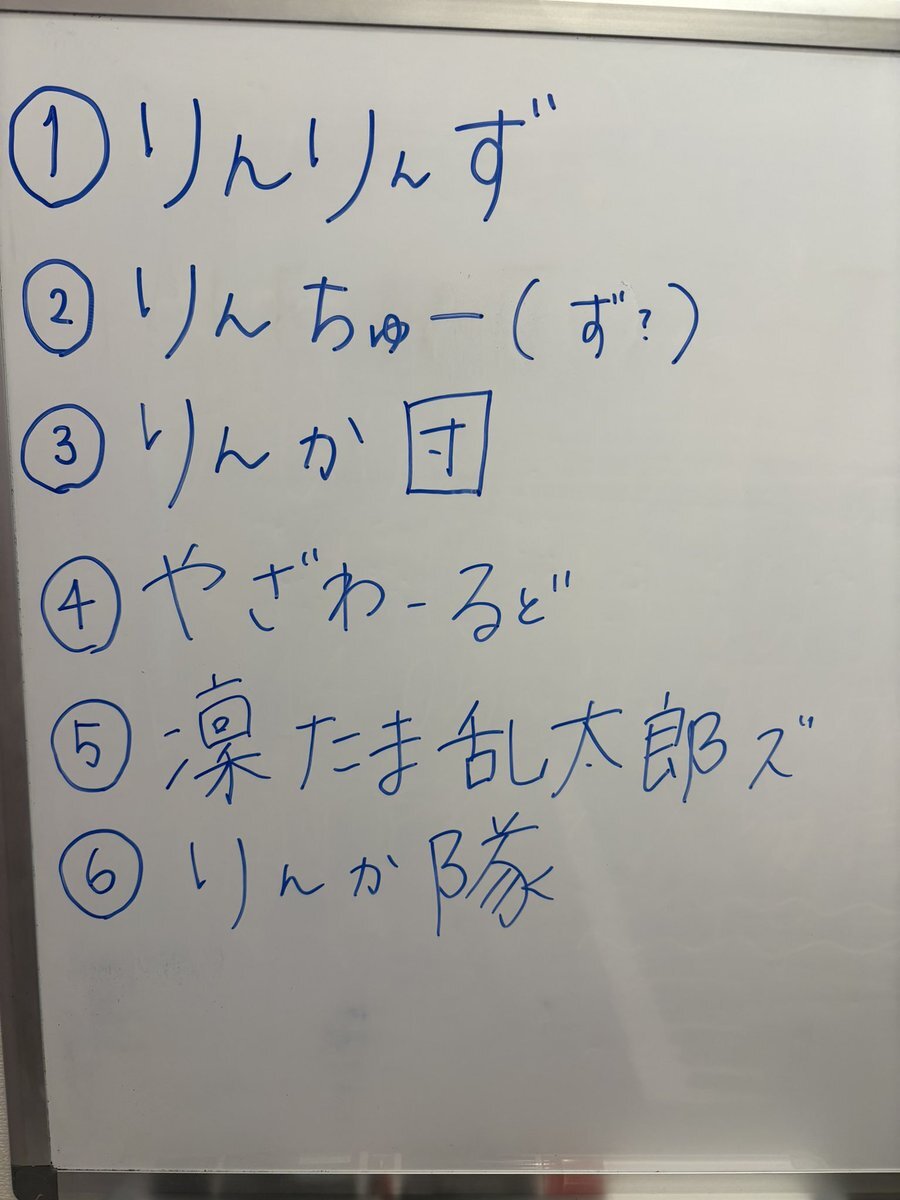 ① りんりんず
② りんちゅー(ず?)
③ りんか団
④ やざわーるど
⑤ 凛たま乱太郎ズ
⑥ りんか隊